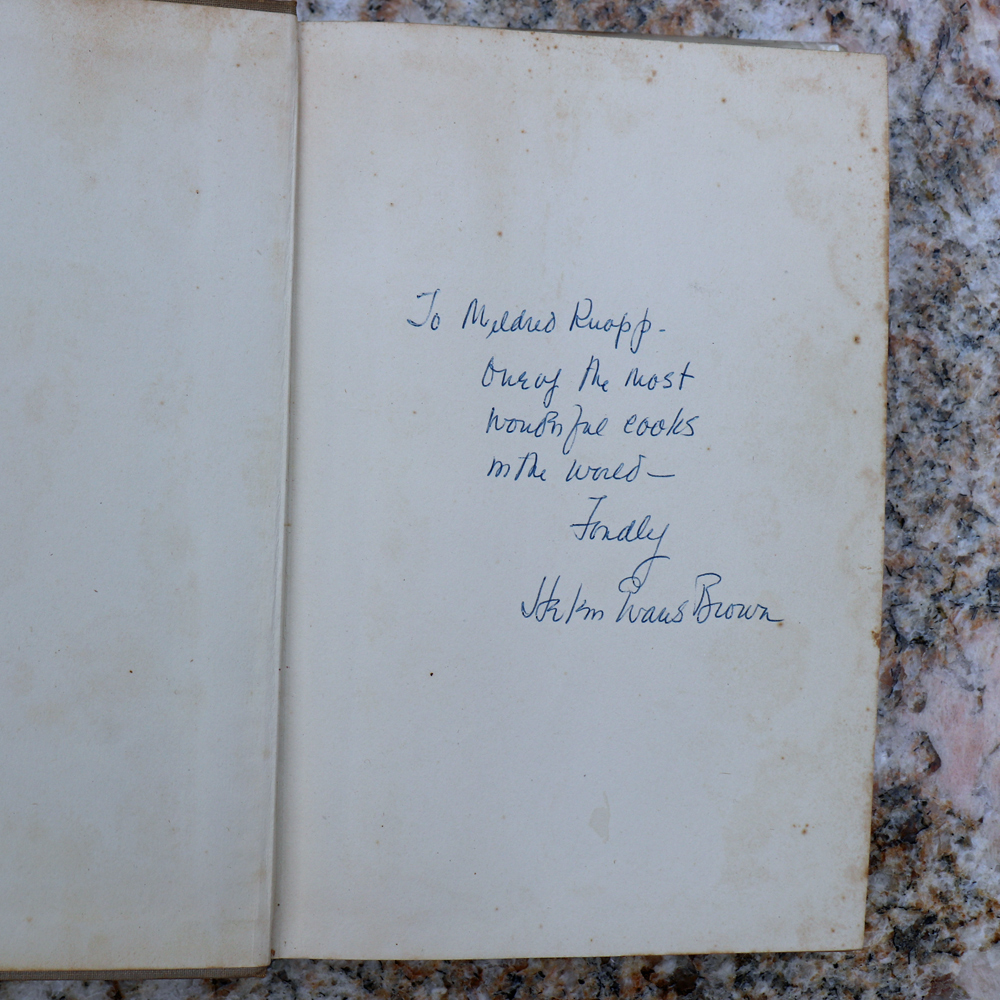 To Mildred Knopp -
One of the most
wonderful cooks
in the world —
Fondly
Helen Evans Brown